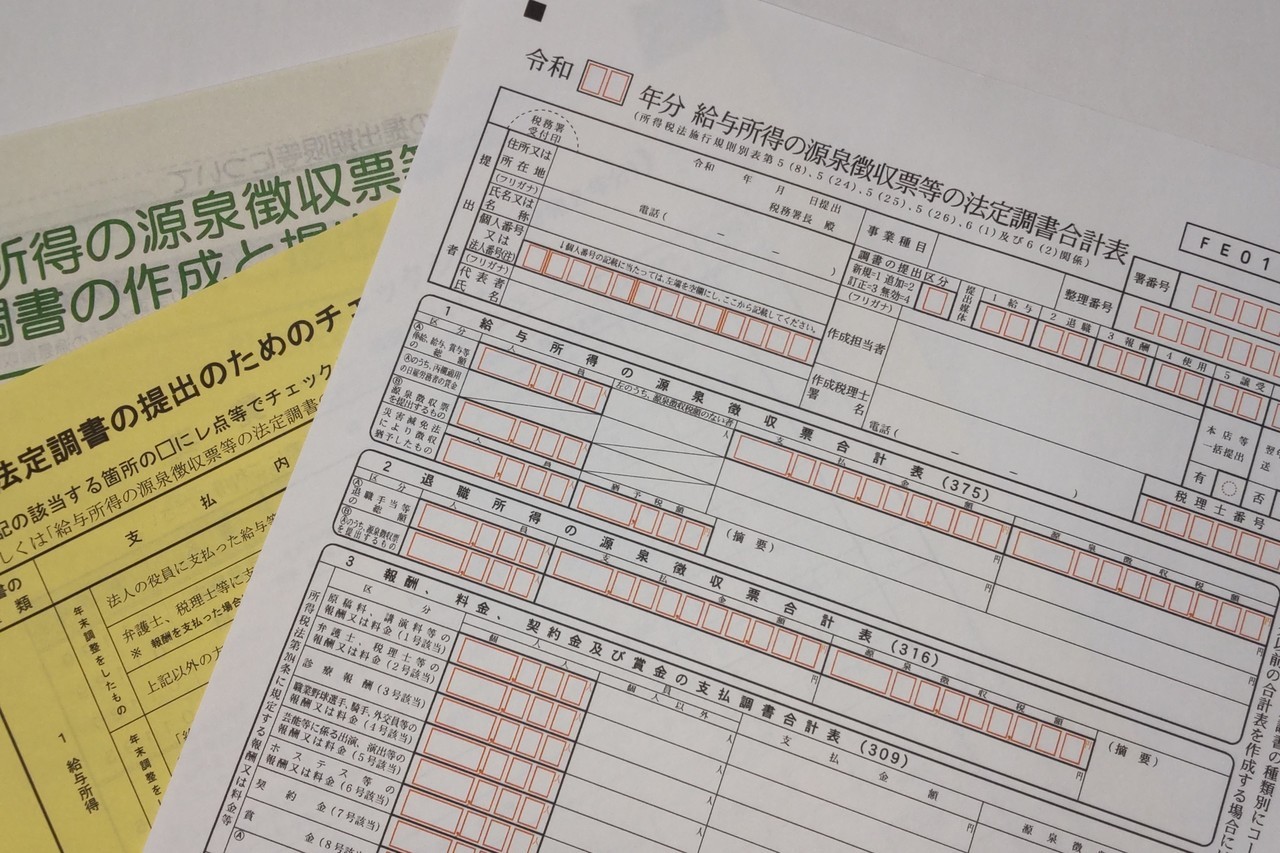 令和 年分 給与所得の源泉徴収票等の法定調書合計表
(所得税法施行規則別表第5(8)、5(24)、5(25)、5(26)、6(1)及び6(2)関係)
FE01
税務署
受付印
令和 年 月 日提出
税務署長 殿
提出者
住所又は
所在地
電話( － － )
(フリガナ)
氏名又は
名称
個人番号
又は
法人番号(注)
↓個人番号の記載に当たっては、左端を空欄にし、ここから記載してください。
(フリガナ)
代表者
氏名
事業種目
整理番号
署番号
調書の提出区分
新規=1 追加=2
訂正=3 無効=4
提出媒体
1 給与
2 退職
3 報酬
4 使用
5 譲受
(フリガナ)
作成担当者
作成税理士
署名
電話( － － )
本店等
一括提出
有
否
税理士番号
1 給与所得の源泉徴収票合計表(375)
区分
人員
左のうち、源泉徴収税額のない者
支払金額
源泉徴収税額
Ⓐ俸給、給与、賞与等
の総額
Ⓐのうち、丙欄適用
の日雇労務者の賃金
Ⓑ源泉徴収票
を提出するもの
災害減免法
により徴収
猶予したもの
人員
猶予税額
(摘要)
2 退職所得の源泉徴収票合計表(316)
区分
人員
支払金額
源泉徴収税額
Ⓐ退職手当等
の総額
ⒷⒶのうち、源泉徴収票
を提出するもの
(摘要)
3 報酬、料金、契約金及び賞金の支払調書合計表(309)
区分
人員
個人
個人以外
支払金額
源泉徴収
所得税法第204条に規定する報酬又は料金等
原稿料、講演料等の
報酬又は料金(1号該当)
弁護士、税理士等の
報酬又は料金(2号該当)
診療報酬(3号該当)
職業野球選手、騎手、外交員等の
報酬又は料金(4号該当)
芸能等に係る出演、演出等の
報酬又は料金(5号該当)
ホステス等の
報酬又は料金(6号該当)
契約金(7号該当)
賞金(8号該当)
Ⓐ
所得の源泉徴収票
調書の作成と提出
法定調書の提出のためのチェ
記の該当する箇所の□にレ点等でチェック
しくは「給与所得の源泉徴収票等の法定調書
支払内
書の
類
1 給与所得
年末調整をしたもの
法人の役員に支払った給与等
弁護士、税理士等に支
※ 報酬を支払った場合
上記以外の
年末調整を